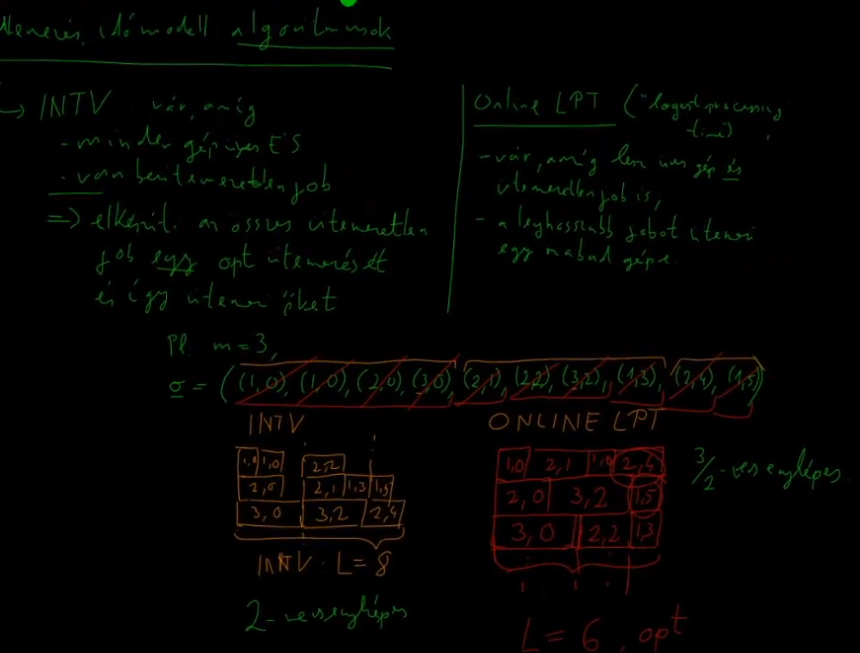 időmodell algoritmusok
→ INTV vár, amíg
- minden gép üres ÉS
- van beütemezetlen job
=> elkészít. az összes ütemezetlen
job egy opt ütemezését
és így ütemezi őket
Online LPT ("longest processing
time)
- vár, amíg lesz üres gép és
ütemezetlen job is,
- a leghosszabb jobot ütemezi
egy szabad gépre.
Pl. m = 3,
σ = ((1,0), (1,0), (2,0), (3,0), (2,1), (2,2), (3,2), (1,3), (2,4), (1,5))
INTV
ONLINE LPT
1,0 1,0 2,2
2,0 2,1 1,3 1,5
3,0 3,2 2,4
INTV L = 8
2-versenyképes
1,0 2,1 1,0 2,4
2,0 3,2 1,5
3,0 2,2 1,3
3/2-versenyképes
L = 6, opt